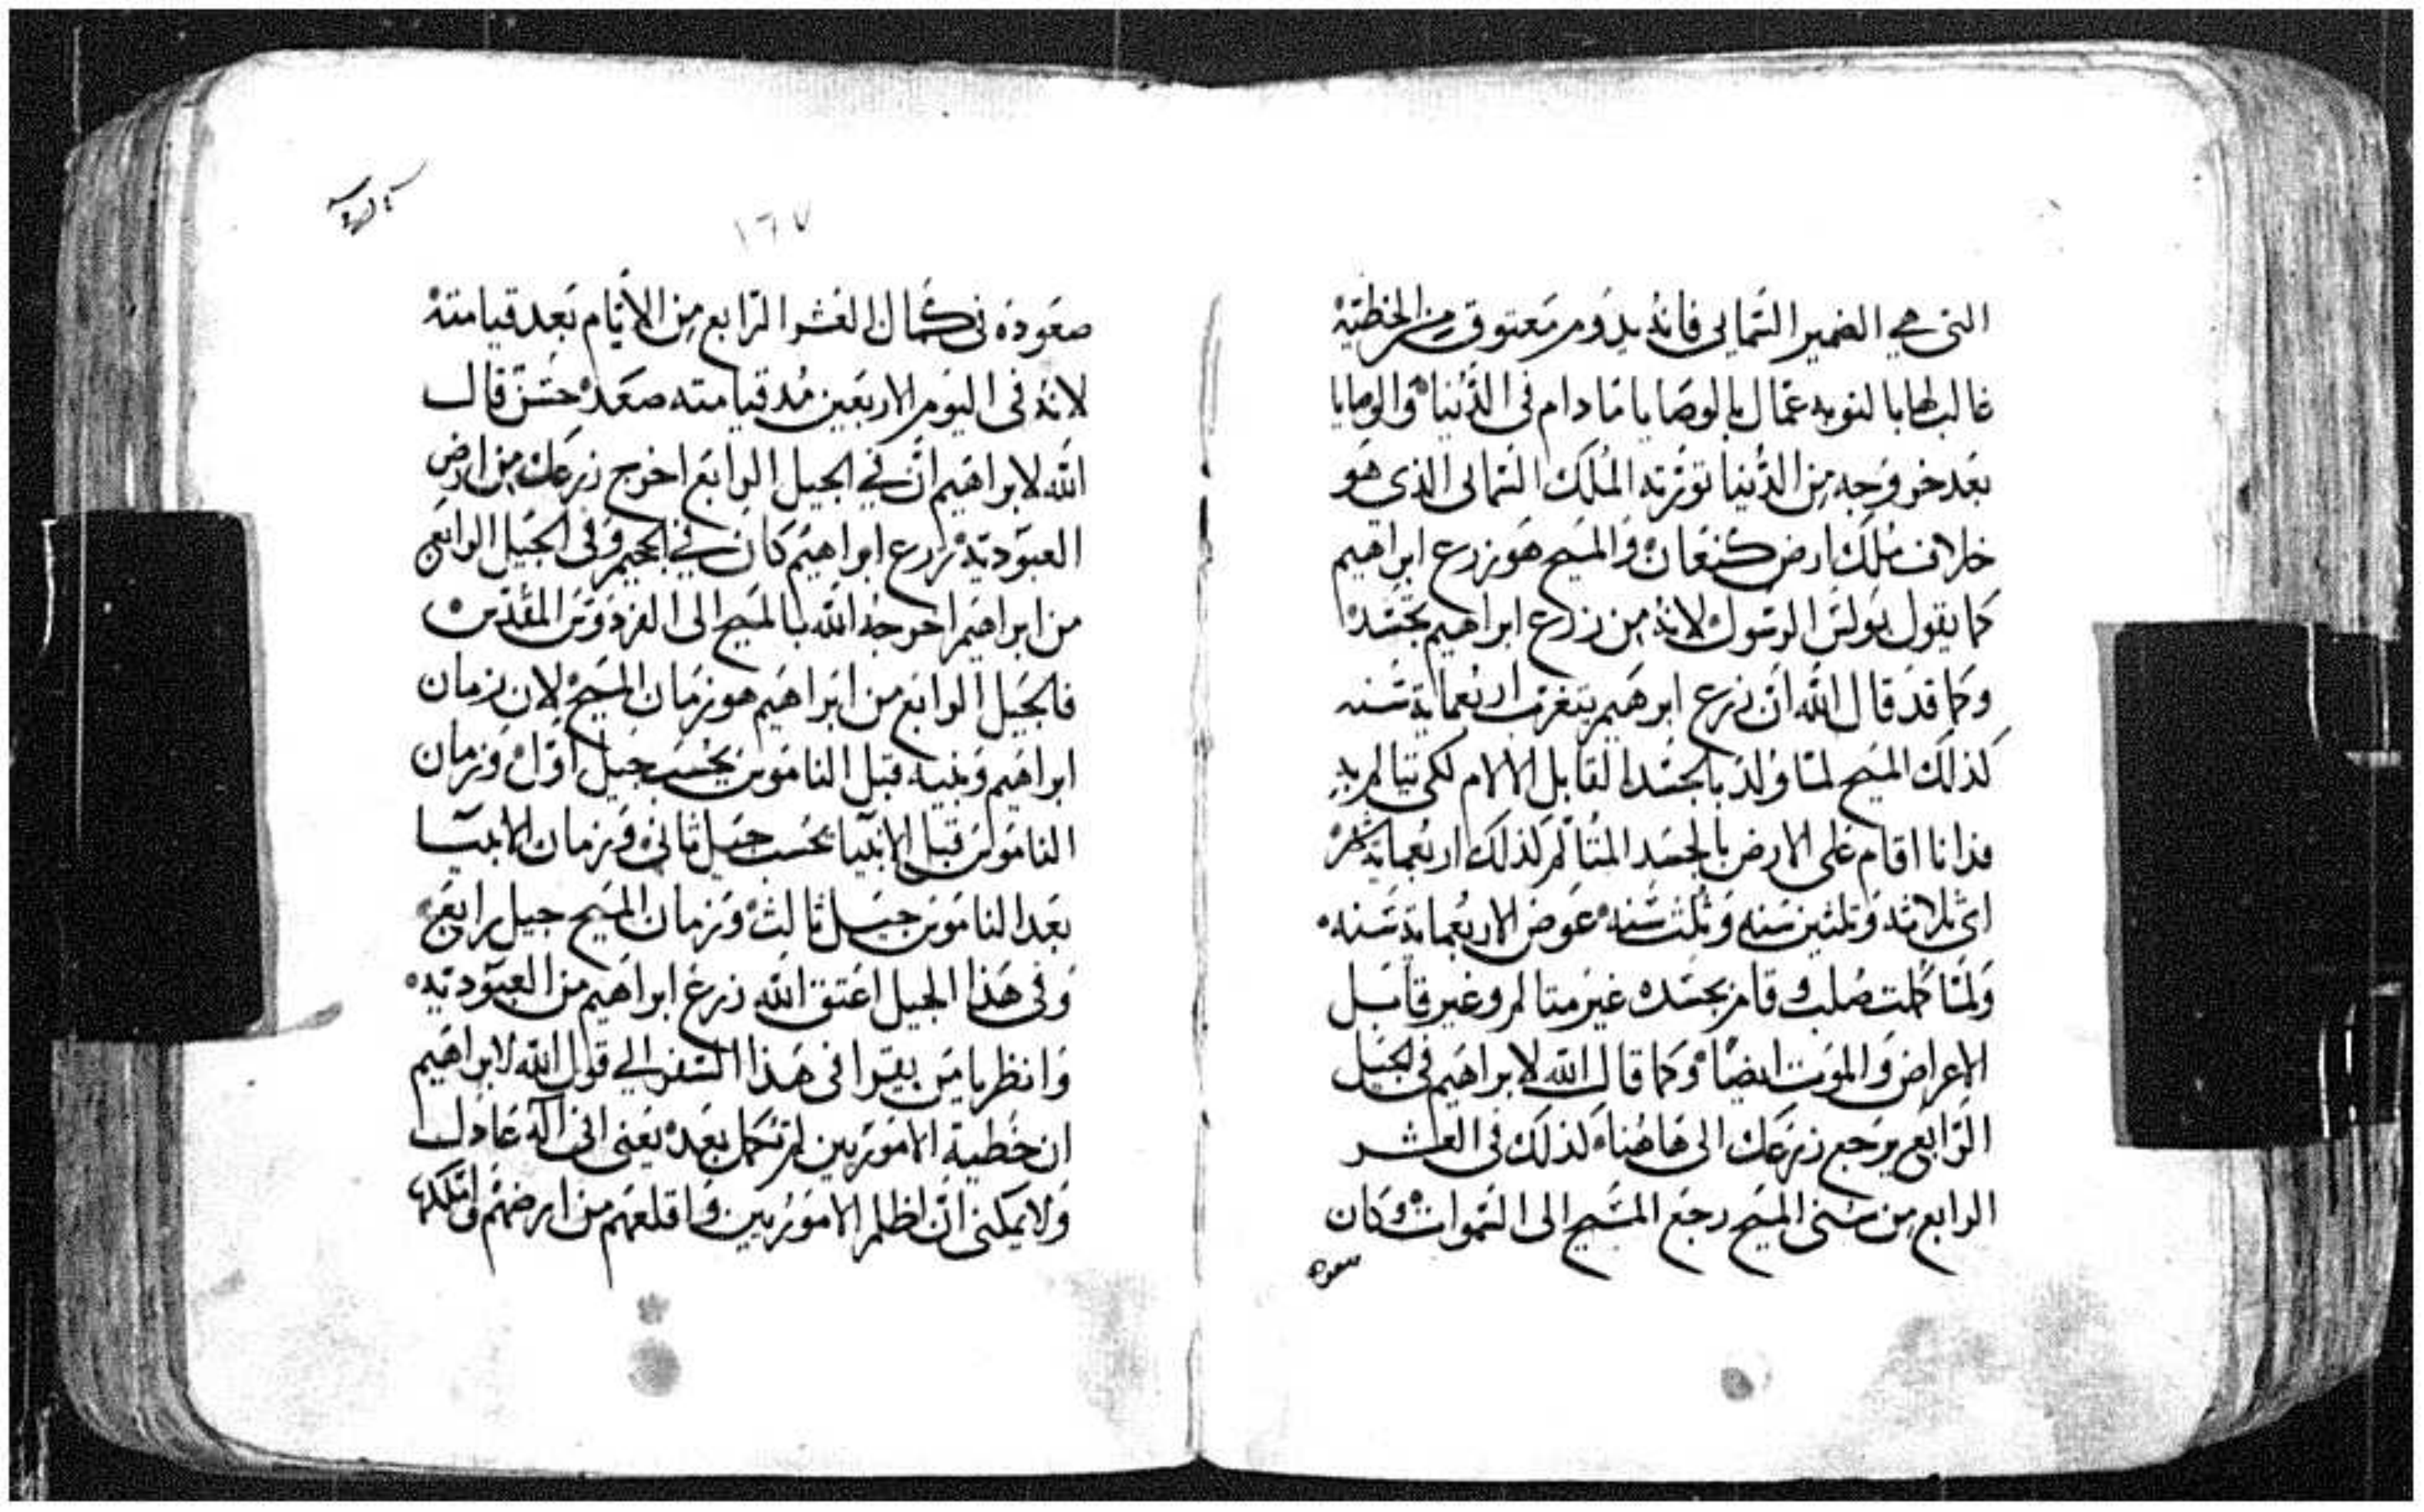 التى هي الضمير السماىى فانه يدوم معتوق من الخطيّة
غالب لها بالتوبه عمّال بالوصايا مادام فى الدّنيا والوصايا
بَعد خروجه مِن الدّنيا تورّته المُلك السّماىى الذى هَو
خلاف مُلك ارض كنعَان والمسيح هو زرع ابراهيم
كما يقول بولس الرسول لانه من زرع ابراهيم بجسَده
وكما قد قال الله ان زرع ابرهيم يتغرب اربعماية سَنه
كذلك المسيح لمّا وُلد بالجسَد القابل الالام لكى يتالم به
فدانا اقام على الارض بالجسَد المتالم لذلك اربعماية شهر
اى ثلاثه وثلثين سَنه وثلث سَنه عوض الاربعماية سَنه
ولمّا كملت صُلب وقام بجسَده غير متالم وغير قابل
الاعراض والموت ايضًا وكما قال الله لابراهيم فى الجيل
الرّابع يرجع زرعك الى هاهُنا كذلك فى العشر
الرابع من سنى المسيح رجع المسيح الى السّموات وكان
صعوده
١٦٧
صعَوده فى كمال العَشر الرّابع مِن الأيّام بَعد قيامته
لانه فى اليوم الاربَعين مُد قيامته صعَد حسَن قال
الله لابراهيم ان في الجيل الرابع اخرج زرعك من ارض
العبوديّة زرع ابراهيم كان في الجحيم وفى الجيل الرابع
من ابراهيم اخرجه الله بالمسيح الى الفردوس المقدّس
فالجيل الرابع من ابراهيم هو زمان المسيح لان زمان
ابراهيم وبنيه قبل الناموس يحسب جيل اوّل وزمان
الناموس قبل الانبيا يحسب جيل ثانى وزمان الانبيا
بعد الناموس جيل ثالث وزمان المسيح جيل رابع
وفى هَذا الجيل اعتق الله زرع ابراهيم من العبوديّه
وانظر يا من يقرا فى هَذا السّفر الي قول الله لابراهيم
ان خطية الامورّيين لم تكمل بعد يعنى انى اله عَادل
ولا يمكنى ان اظلم الاموريين واقلعهم من ارضهم واملكها